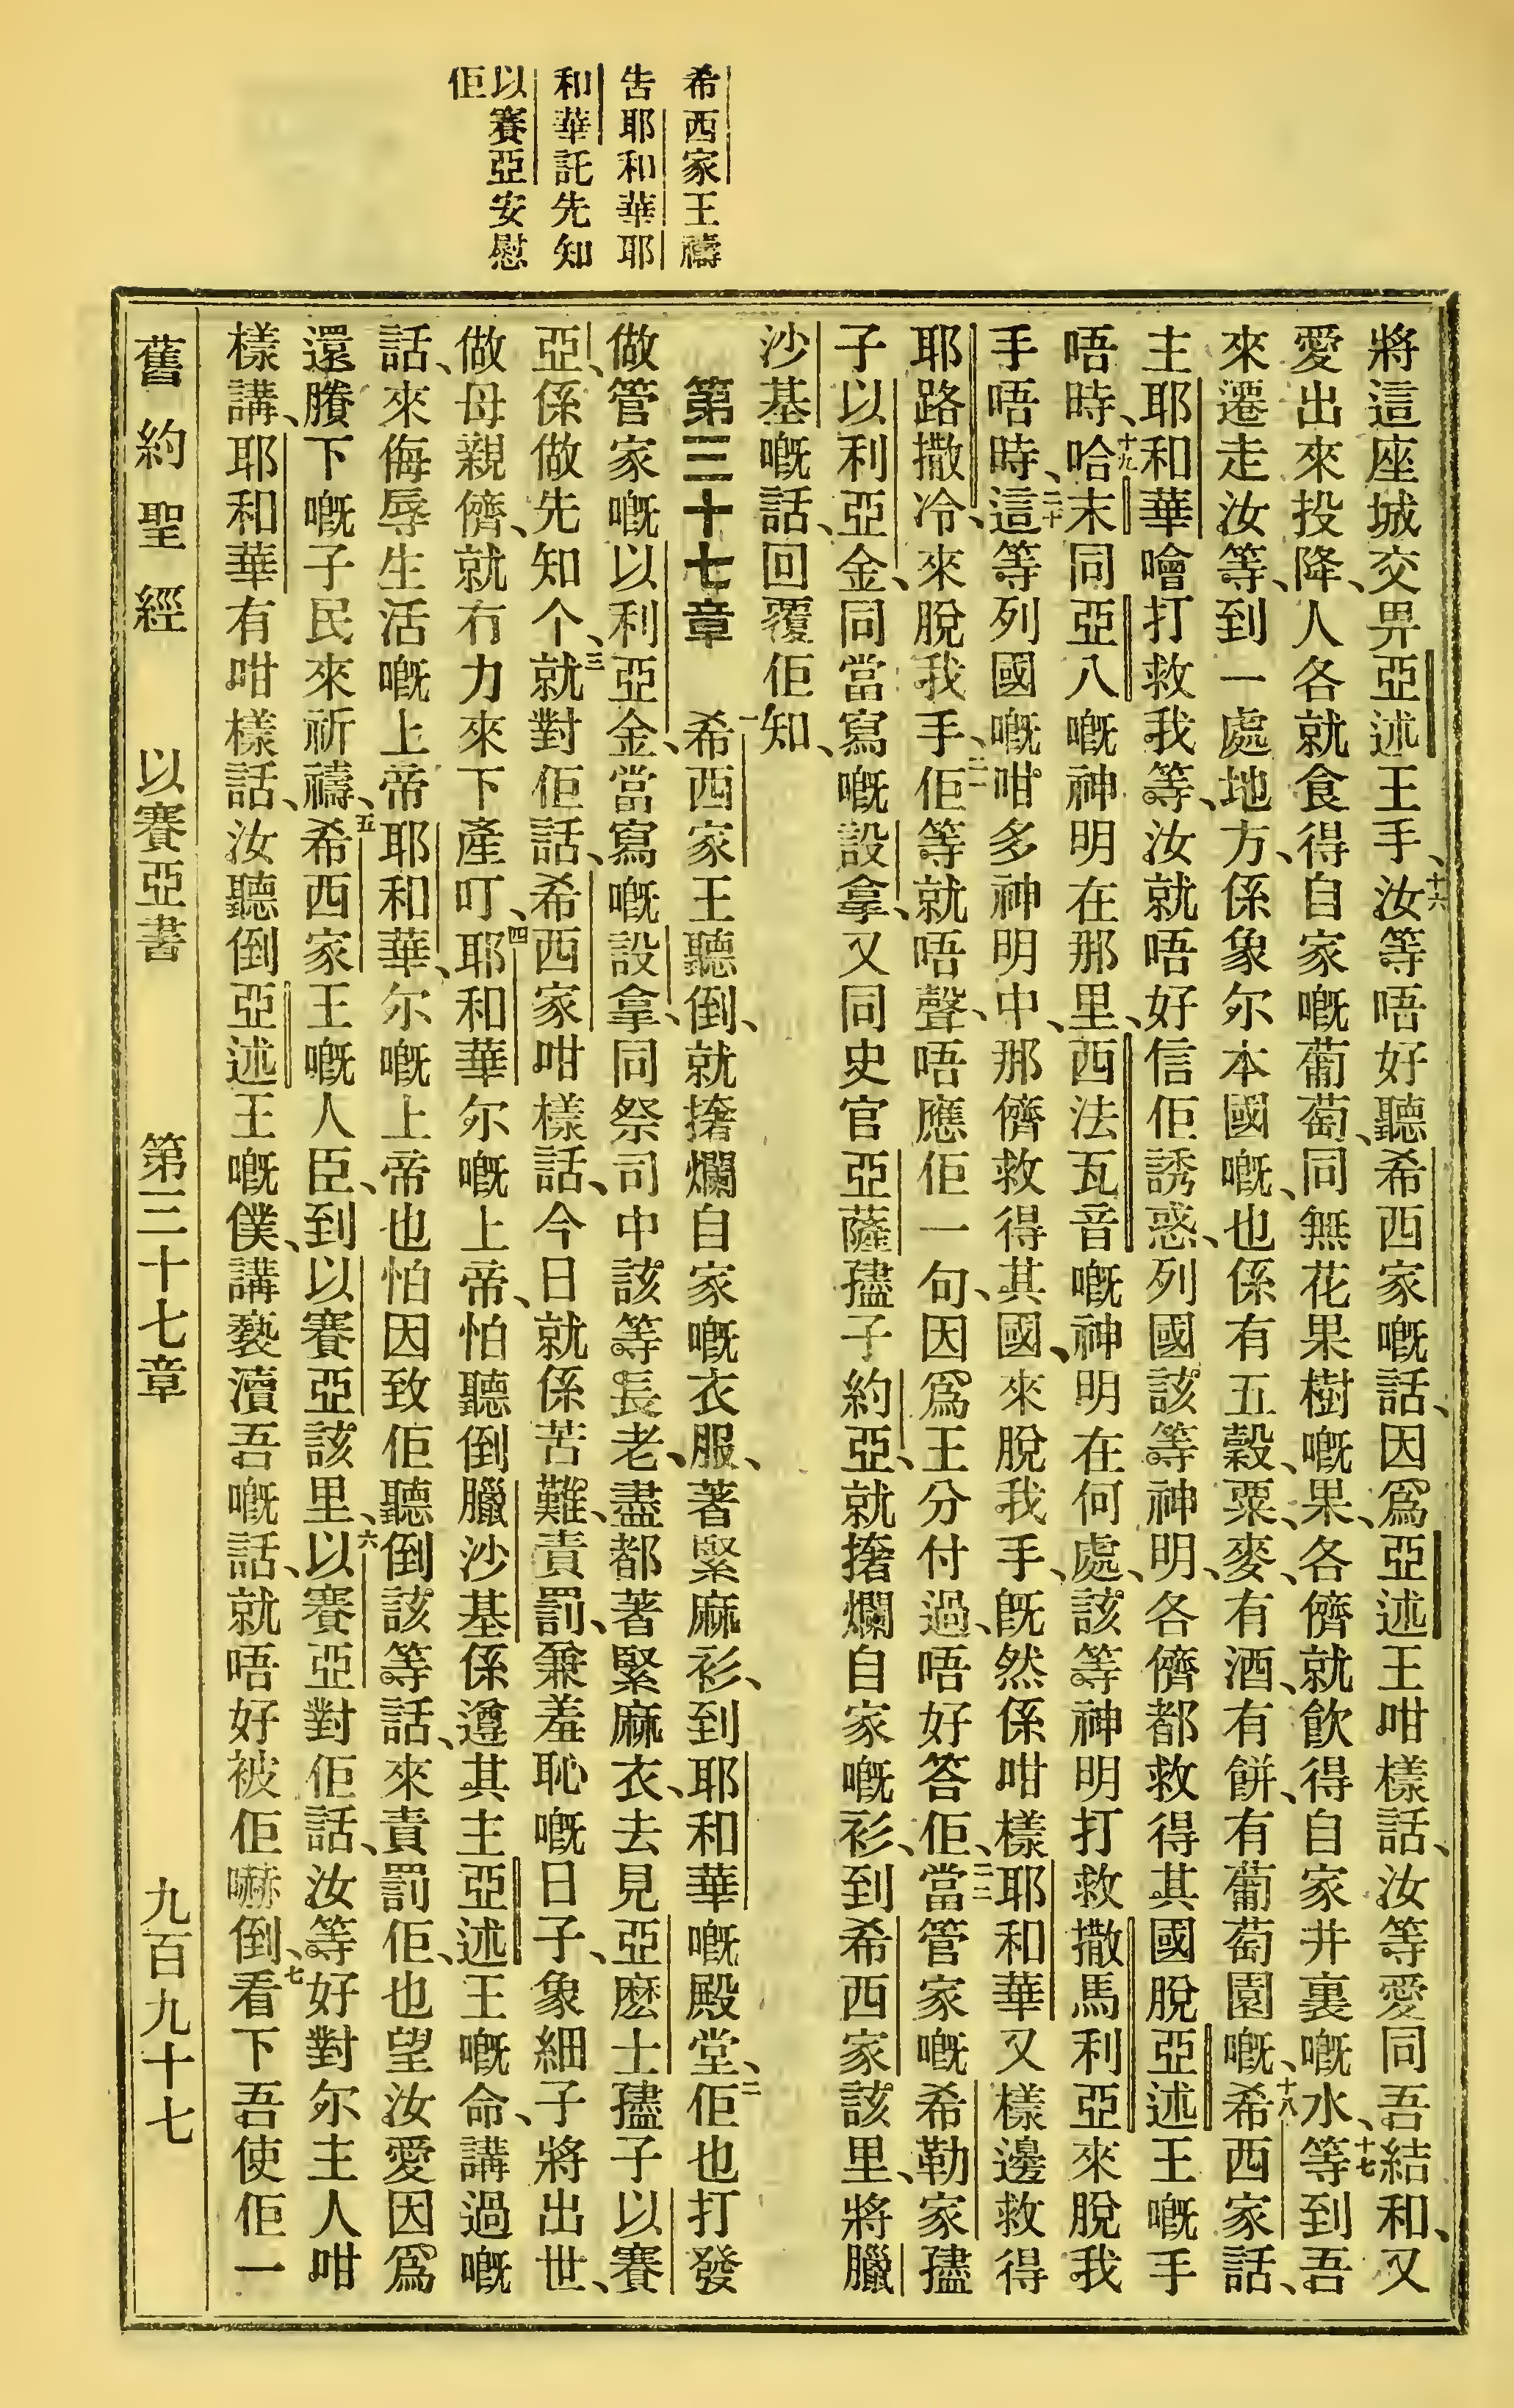 希西家王禱
告耶和華耶
和華託先知
以賽亞安慰
佢
將這座城交畀亞述王手、十六汝等唔好聽希西家嘅話、因爲亞述王咁樣話、汝等愛同吾結和、又
愛出來投降、人各就食得自家嘅葡萄、同無花果樹嘅果、各儕就飲得自家井裏嘅水、十七等到吾
來遷走汝等、到一處地方、係象尔本國嘅、也係有五穀、粟、麥、有酒、有餅、有葡萄園嘅、十八希西家話、
主耶和華噲打救我等、汝就唔好信佢誘惑、列國該等神明、各儕都救得其國脫亞述王嘅手
唔時、十九哈末同亞八嘅神明在那里、西法瓦音嘅神明在何處、該等神明打救撒馬利亞來脫我
手唔時、二十這等列國嘅咁多神明中、那儕救得其國、來脫我手、旣然係咁樣耶和華又樣邊救得
耶路撒冷、來脫我手、二一佢等就唔聲、唔應佢一句、因爲王分付過、唔好答佢、二二當管家嘅希勒家孻
子以利亞金、同當寫嘅設拿、又同史官亞薩孻子約亞、就撦爛自家嘅衫、到希西家該里、將臘
沙基嘅話、回覆佢知、
第三十七章 一希西家王聽倒、就撦爛自家嘅衣服、著緊麻衫、到耶和華嘅殿堂、二佢也打發
做管家嘅以利亞金、當寫嘅設拿、同祭司中該等長老、盡都著緊麻衣、去見亞麽士孻子以賽
亞、係做先知个、三就對佢話、希西家咁樣話、今日就係苦難、責罰、兼羞恥嘅日子、象細子將出世、
做母親儕、就冇力來下產叮、四耶和華尔嘅上帝、怕聽倒臘沙基係遵其主亞述王嘅命、講過嘅
話、來侮辱生活嘅上帝耶和華、尔嘅上帝也怕因致佢聽倒該等話、來責罰佢、也望汝愛因爲
還賸下嘅子民來祈禱、五希西家王嘅人臣、到以賽亞該里、六以賽亞對佢話、汝等好對尔主人咁
樣講、耶和華有咁樣話、汝聽倒亞述王嘅僕、講褻瀆吾嘅話、就唔好被佢嚇倒、七看下吾使佢一
舊約聖經 以賽亞書 第三十七章 九百九十七